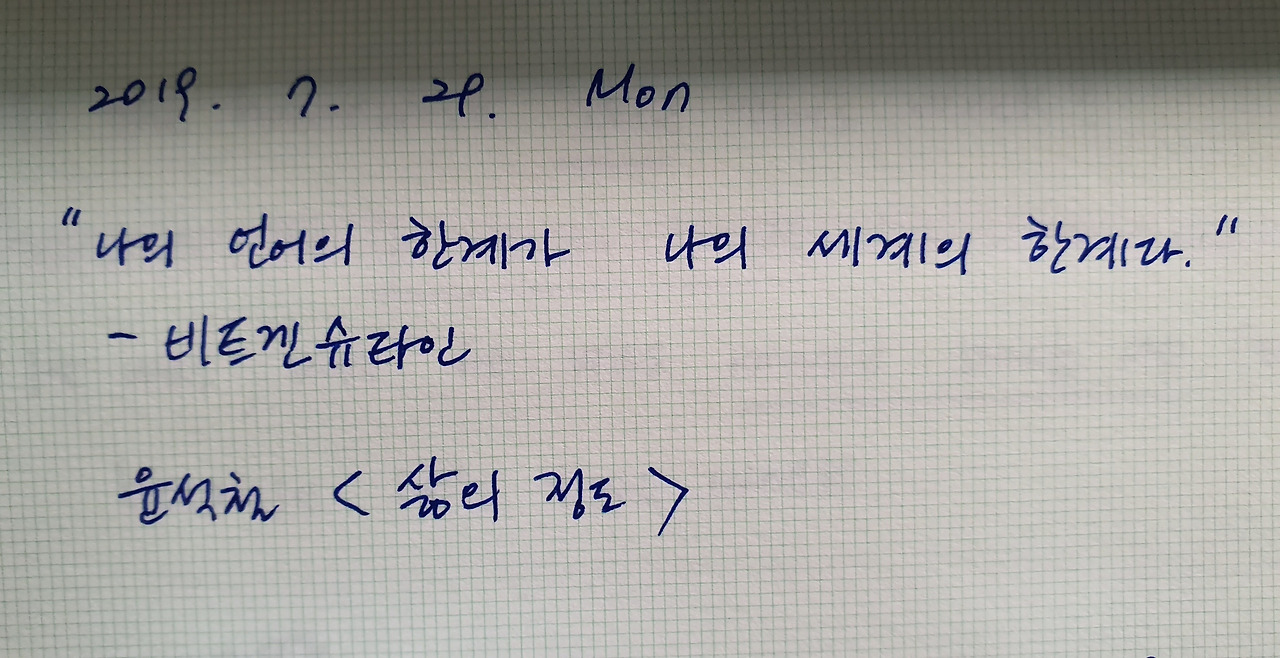 2019. 7. 29. Mon
"나의 언어의 한계가 나의 세계의 한계다."
- 비트겐슈타인
윤석철 < 삶의 정도 >